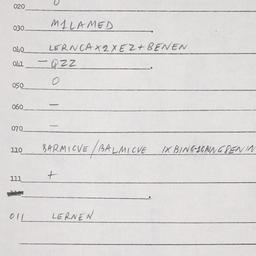 020 0
030 M1LAMED
040 LERNCAX2XEZ+BENEN
041 - QZZ
050 0
060 —
070 —
110 BARMICVE/BALMICVE
111 +
011 LERNEN